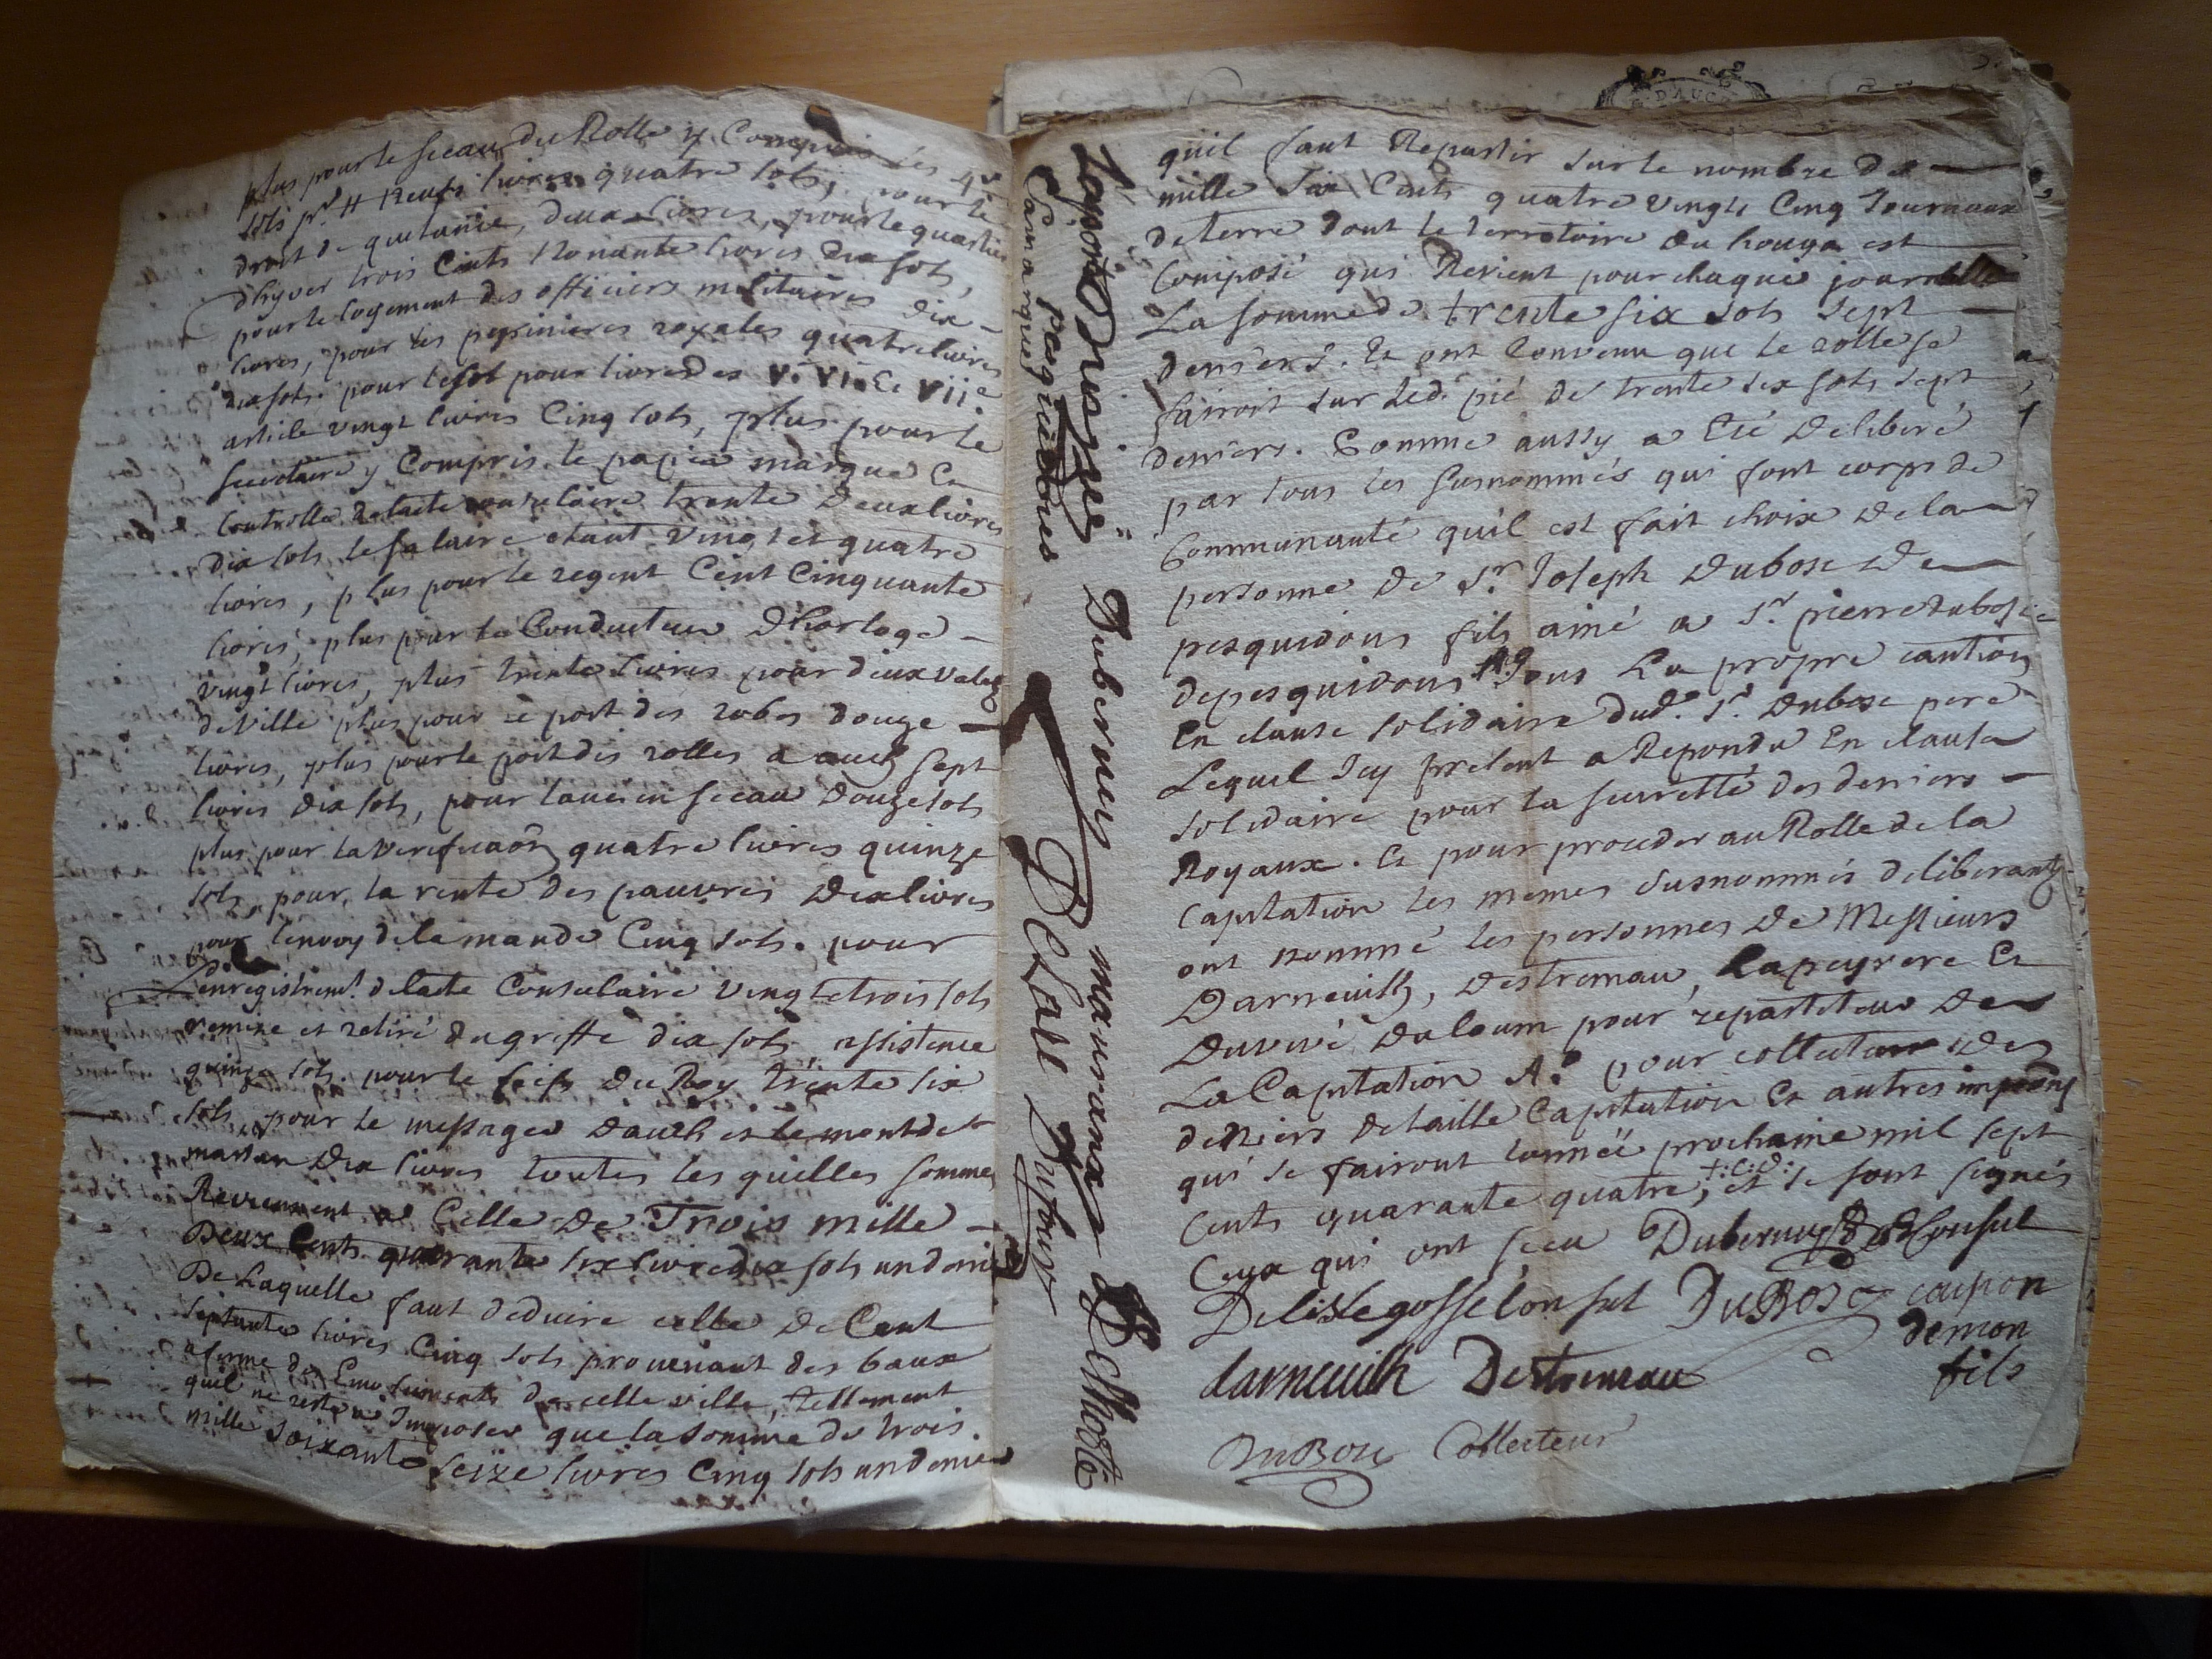 plus pour le sceau du Rolle y Compris les 4 d
sols pr. H neufs livres quatre sols, pour le
droit de quittance, deux livres, pour le quartier
dhyver trois Cents Nonante livres dix sols,
pour le logement des officiers militaires dix
livres, pour les pepinieres royales quatre livres
dix sols. pour le sol pour livre des V. VI. Et VIIe
article vingt livres Cinq sols, plus pour le
secretaire y Compris le papier marqué Et
Controlle de lacte consulaire trente Deux livres
dix sols le salaire etant vingt et quatre
livres, plus pour le regent Cent Cinquante
livres, plus pour le Conducteur Dhorloge
vingt livres, plus trente livres pour deux valets
de ville plus pour le port des robes douze
livres, plus pour le port des rolles a auch sept
livres dix sols, pour lancien sceau Douze sols
plus pour la verificaôn quatre livres quinze
sols, pour la rente des pauvres dix livres
pour lenvoy de la mande Cinq sols. pour
Lenregistremt. de lacte Consulaire vingt et trois sols
remize et retiré du greffe dix sols, assistence
quinze sols. pour le fiefs Du Roy trente six
sols, pour le messager Dauch et le mont de
marsan Dix livres toutes lesquelles sommes
Reviennent a Celle De Trois mille
Deux Cents quarante six livres dix sols un denier
De Laquelle faut deduire celle De Cent
septante livres Cinq sols provenant des baux
a ferme des Emoluments de cette ville, tellement
quil ne reste a Imposer que la somme de trois
mille soixante seize livres Cinq sols un denier
Laporte Driszé Duberner maurans DLMotte
Camarques pesquidoues DLaSl Dufour
quil faut Repartir sur le nombre de
mille six Cents quatre vingts Cinq Journaux
de terre dont le territoire du houga est
Composé qui Revient pour chaque journalle
La somme de trente six sols sept
deniers. Et ont Convenu que le rolle se
fairoit sur led. pié de trente six sols sept
deniers. Comme aussy a Eté Deliberé
par tous les susnommés qui font corps de
Communauté quil est fait choix de la
personne De Sr. Joseph Dubosc De
pesquidous fils ainé a Sr. pierre dubosc
de pesquidous Sous La propre caution
En clause solidaire dud. Sr. Dubosc pere
Lequel Icy present a Repondu En clause
solidaire pour la seuretté des deniers
Royaux. Et pour proceder au Rolle de la
Capitation les memes susnommés deliberants
ont nommé les personnes de Messieurs
Darneuilh, Destremau, Lapeyrere Et
Duvivé Daloum pour repartiteur De
La Capitation pour collecteur des
deniers de taille Capitation Et autres impaôns
qui se fairont lannée prochaine mil sept
Cents quarante quatre, et se sont signés
Ceux qui ont sceu Duberner Consul
Delislegosse Consul DuBosc caupon
de mon
fils
darneuilh Destremau
DuBosc Collecteur